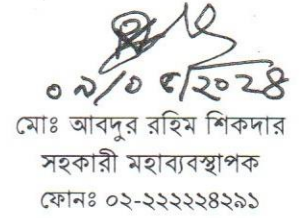 ০৯/০৫/২০২৪
মোঃ আবদুর রহিম শিকদার
সহকারী মহাব্যবস্থাপক
ফোনঃ ০২-২২২২২৪২৯১